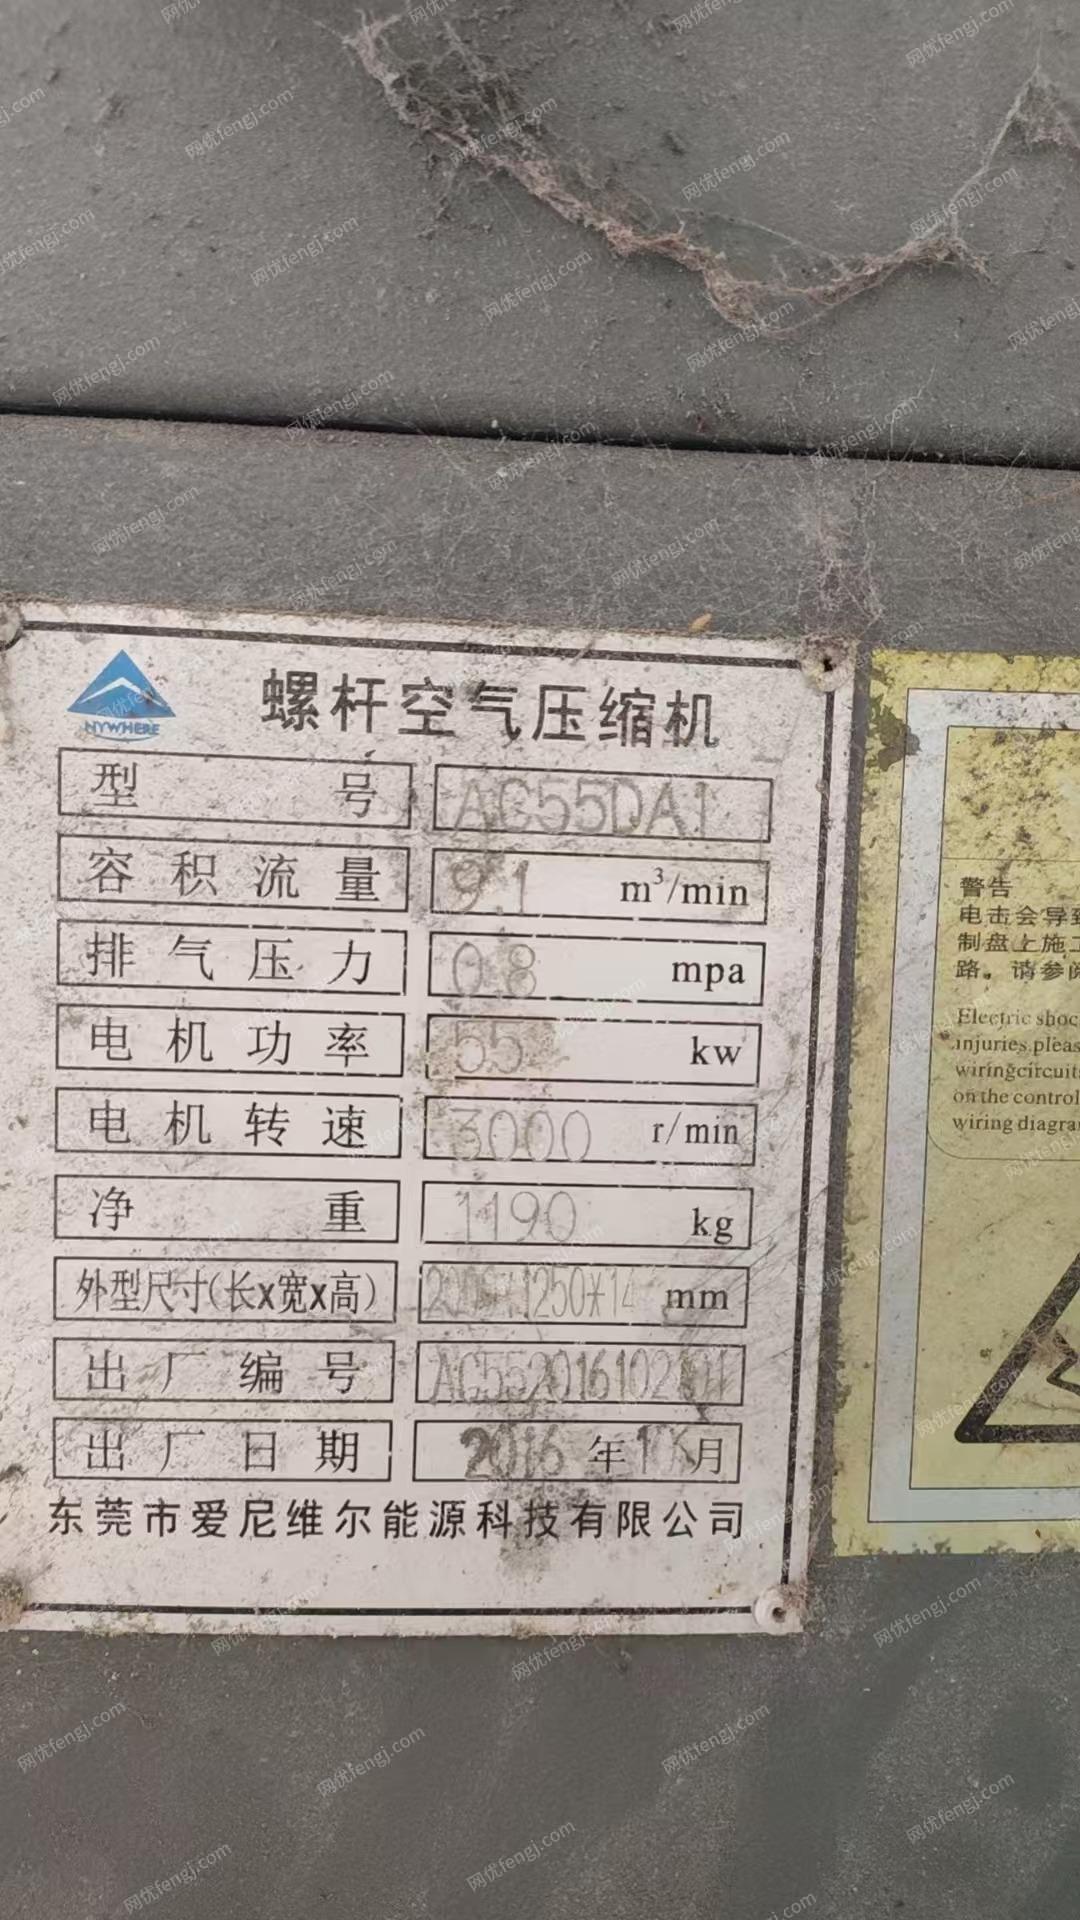 NYWHERE
螺杆空气压缩机
型号 AC55DA1
容积流量 9.1 m³/min
排气压力 0.8 mpa
电机功率 55 kw
电机转速 3000 r/min
净重 1190 kg
外型尺寸(长x宽x高) 1250*14 mm
出厂编号
出厂日期 2016年10月
东莞市爱尼维尔能源科技有限公司
警告
电击会导致
制盘上施工
路。请参阅
Electric shoc
injuries,pleas
wiringcircuits
on the control
wiring diagra
网优fengj.com